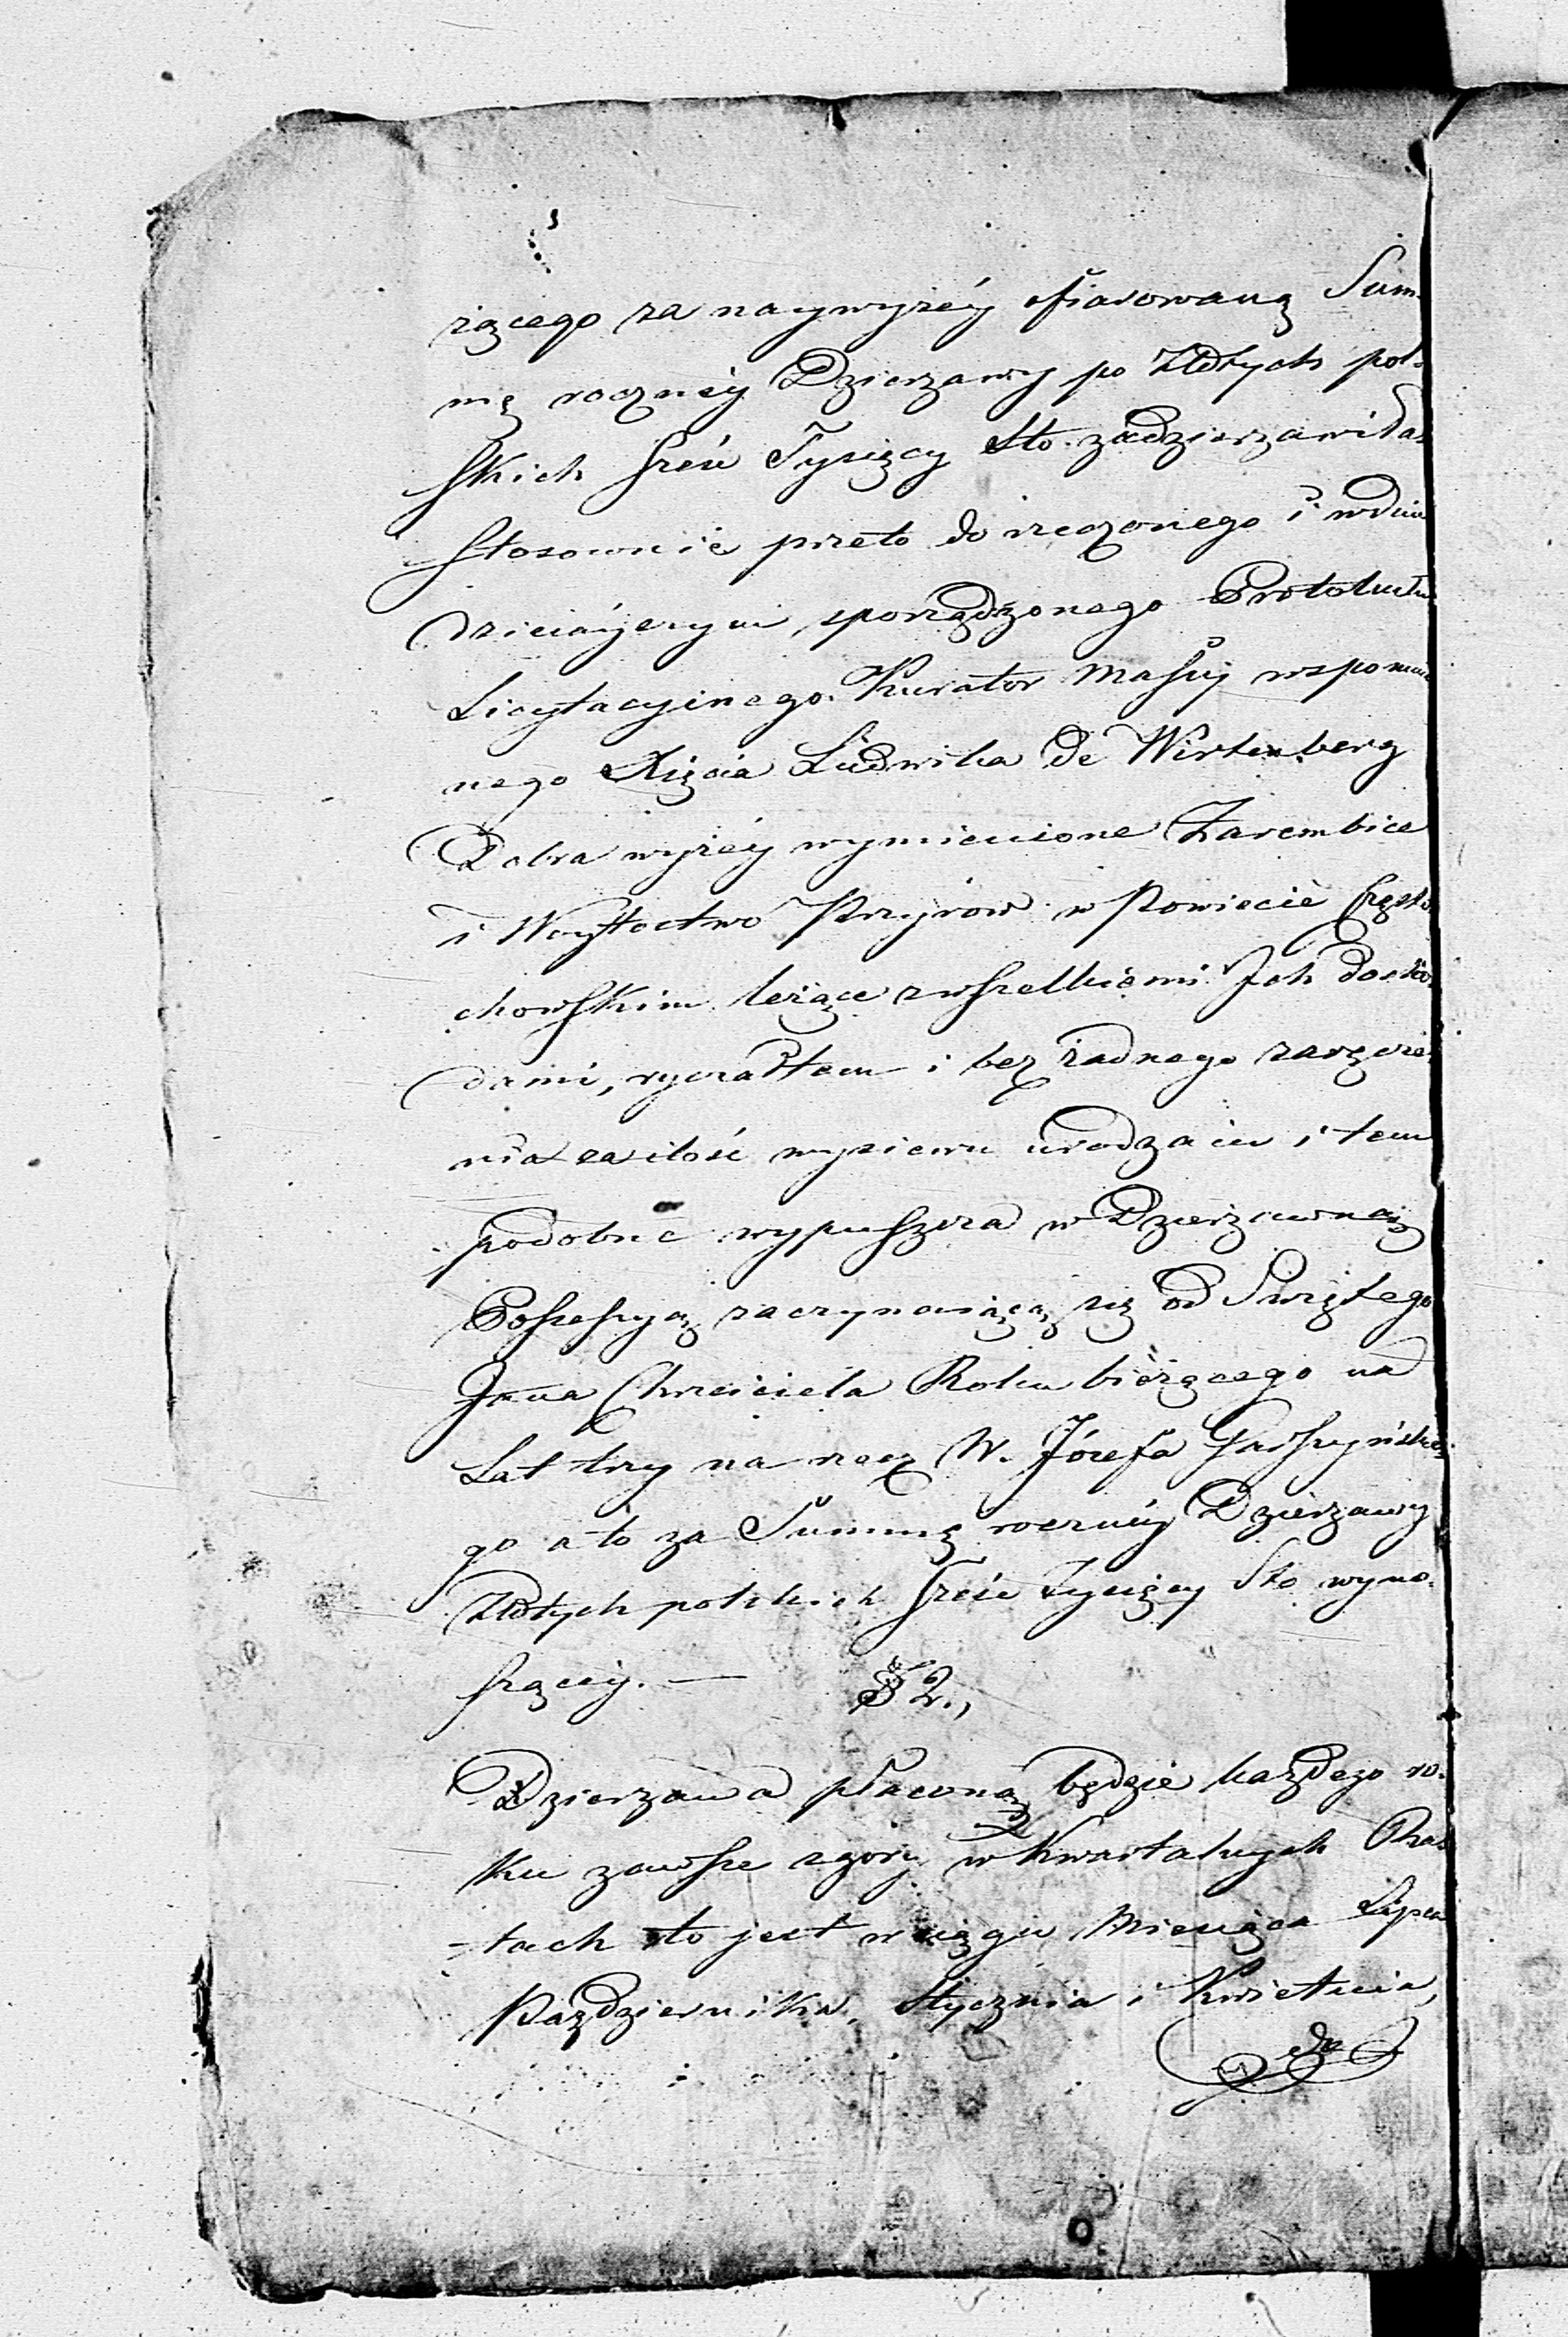 żącego za naywyżéy ofiarowaną Sum-
mę roczney Dzierzawy po Złotych pol-
skich sześć Tysięcy Sto. zadzierzawił a
stosownie przeto do rzeczonego i w dniu
dzisieyszym sporządzonego Protokułu
Licytacyinego. Kurator Massy wspomnio
nego Xięcia Ludwika de Wirtemberg
Dobra wyżéy wymienione Zarembice
i Woytostwo Przyrów w Powiecie Często
chowskim leżące z wszelkiemi Ich docho
dami, ryczałtem i bez żadnego zaręcze
nia za ilość wysiewu urodzaiu i tem
podobne wypuszcza w Dzierzawną
Possessyą zaczynaiącą się od Swiętego
Jana Chrzciciela Roku bieżącego na
Lat trzy na rzecz W. Józefa Gaszyńskie
go a to za Summę roczney Dzierzawy
Złotych polskich sześć Tysięcy Sto wyno-
szącéy. — § 2.,
Dzierzawa płaconą będzie każdego ro-
ku zawsze z góry w Kwartalnych Ra
tach to jest w ciągu Miesiąca Lipca
Pazdziernika, Stycznia i Kwietnia,
do